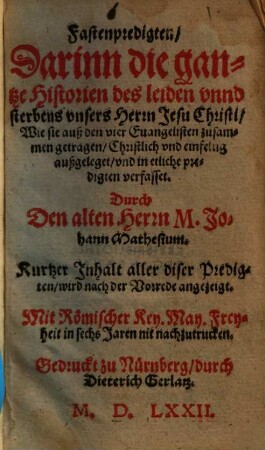 Fastenpredigten/
Darinn die gan-
tze Historien des leiden vnnd
sterbens vnsers Herrn Jesu Christi/
Wie sie auß den vier Euangelisten zusam-
men getragen/ Christlich vnd einfeltig
außgeleget/ vnd in etliche pre-
digten verfasset.
Durch
Den alten Herrn M. Jo-
hann Mathesium.
Kurtzer Inhalt aller diser Predig-
ten/ wird nach der Vorrede angezeigt.
Mit Römischer Key. May. Frey-
heit in sechs Jaren nit nachzutrucken.
Gedruckt zu Nürnberg/ durch
Dieterich Gerlatz.
M. D. LXXII.